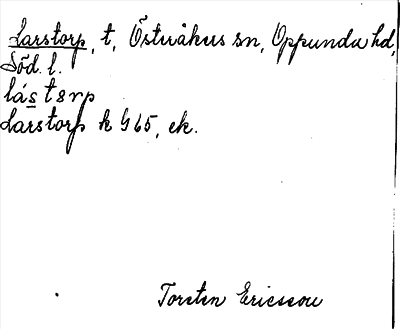 Larstorp, t, Österåkers sn, Oppunda hd,
Söd. l.
lástorp
Larstorp k G65, ek.
Torsten Ericsson